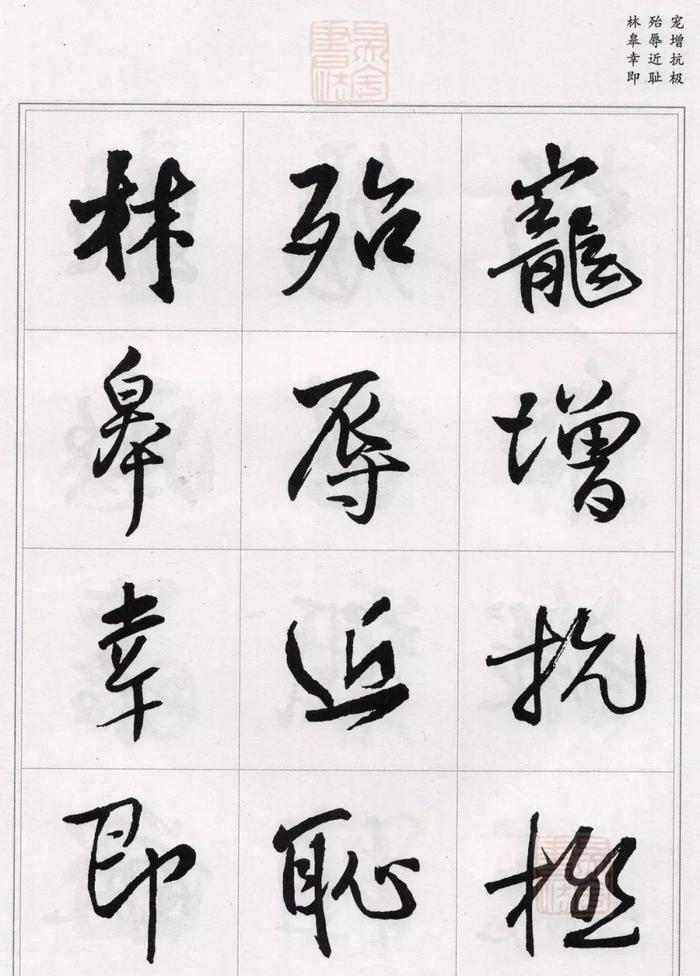 宠增抗极
殆辱近耻
林皋幸即
寵增抗極
殆辱近恥
林皋幸即